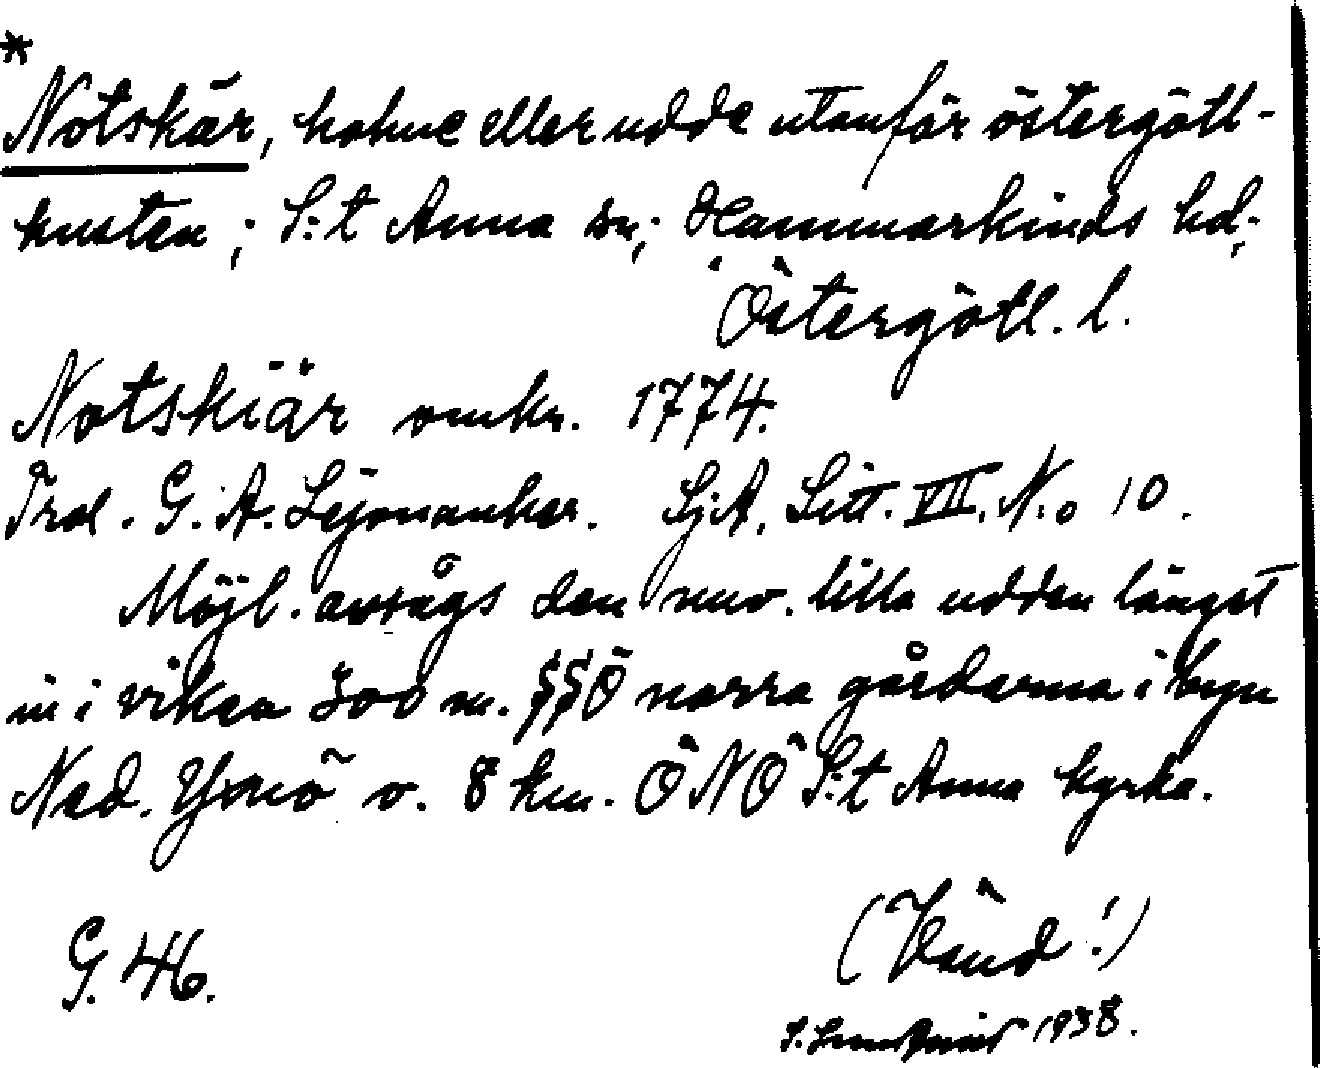 *
Notskär, holme eller udde utanför östergötl-
kusten; S:t Anna sn; Hammarkinds hd;
Östergötl. l.
Notskiär omkr. 1774.
Trol. G. A. Lejonankar. SjA, Litt. VII. N.o 10.
Möjl. avsågs den nuv. lilla udden längst
in i viken 300 m. SSÖ norra gårdarna i byn
Ned. Yxnö o. 8 km. ÖNÖ S:t Anna kyrka.
(Vänd!)
G. 46.
1938.